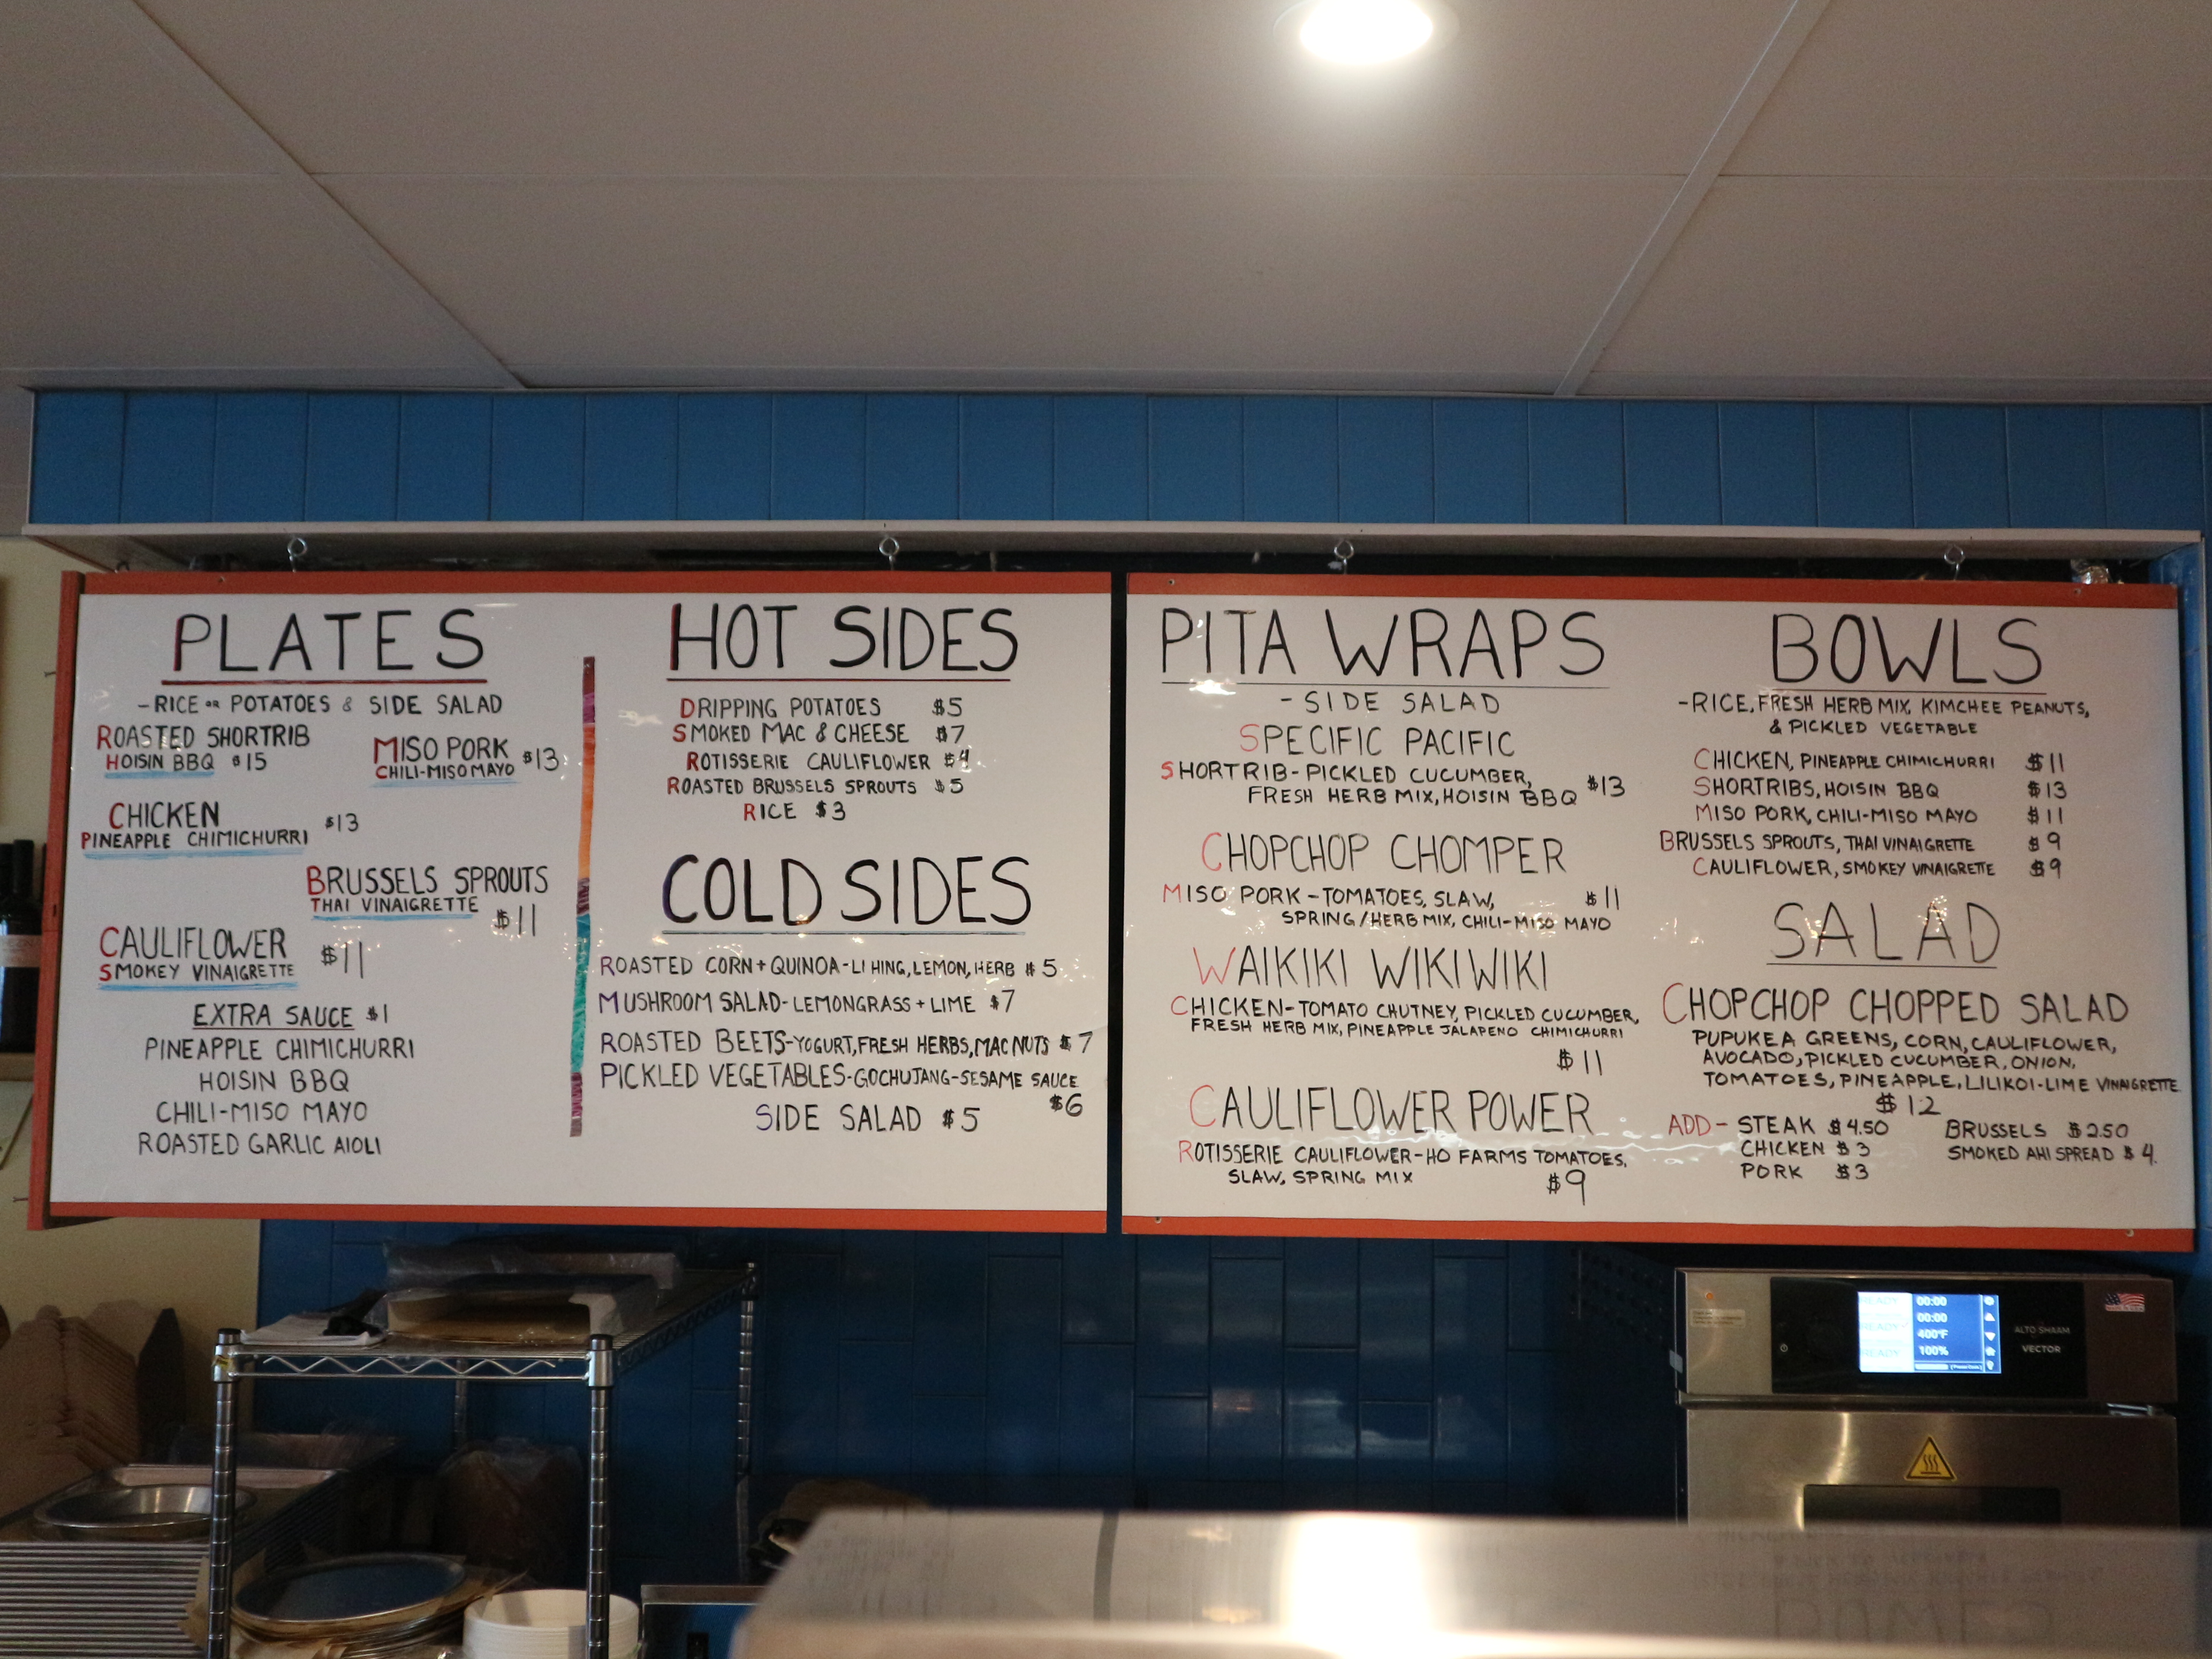 PLATES
-RICE OR POTATOES & SIDE SALAD
ROASTED SHORTRIB
HOISIN BBQ $15
MISO PORK $13
CHILI-MISO MAYO
CHICKEN $13
PINEAPPLE CHIMICHURRI
BRUSSELS SPROUTS
THAI VINAIGRETTE
$11
CAULIFLOWER $11
SMOKEY VINAIGRETTE
EXTRA SAUCE $1
PINEAPPLE CHIMICHURRI
HOISIN BBQ
CHILI-MISO MAYO
ROASTED GARLIC AIOLI
HOT SIDES
DRIPPING POTATOES $5
SMOKED MAC & CHEESE $7
ROTISSERIE CAULIFLOWER $4
ROASTED BRUSSELS SPROUTS $5
RICE $3
COLD SIDES
ROASTED CORN + QUINOA-LI HING, LEMON, HERB $5
MUSHROOM SALAD-LEMONGRASS + LIME $7
ROASTED BEETS-YOGURT, FRESH HERBS, MAC NUTS $7
PICKLED VEGETABLES-GOCHUJANG-SESAME SAUCE
$6
SIDE SALAD $5
PITA WRAPS
-SIDE SALAD
SPECIFIC PACIFIC
SHORTRIB-PICKLED CUCUMBER,
FRESH HERB MIX, HOISIN BBQ $13
CHOPCHOP CHOMPER
MISO PORK-TOMATOES, SLAW, $11
SPRING/HERB MIX, CHILI-MISO MAYO
WAIKIKI WIKIWIKI
CHICKEN-TOMATO CHUTNEY, PICKLED CUCUMBER,
FRESH HERB MIX, PINEAPPLE JALAPENO CHIMICHURRI
$11
CAULIFLOWER POWER
ROTISSERIE CAULIFLOWER-HO FARMS TOMATOES,
SLAW, SPRING MIX $9
BOWLS
-RICE, FRESH HERB MIX, KIMCHEE PEANUTS,
& PICKLED VEGETABLE
CHICKEN, PINEAPPLE CHIMICHURRI $11
SHORTRIBS, HOISIN BBQ $13
MISO PORK, CHILI-MISO MAYO $11
BRUSSELS SPROUTS, THAI VINAIGRETTE $9
CAULIFLOWER, SMOKEY VINAIGRETTE $9
SALAD
CHOPCHOP CHOPPED SALAD
PUPUKEA GREENS, CORN, CAULIFLOWER,
AVOCADO, PICKLED CUCUMBER, ONION,
TOMATOES, PINEAPPLE, LILIKOI-LIME VINAIGRETTE
$12
ADD- STEAK $4.50 BRUSSELS $2.50
CHICKEN $3 SMOKED AHI SPREAD $4.
PORK $3
READY 00:00
00:00
READY 400°F
READY 100%
ALTO SHAAM
VECTOR